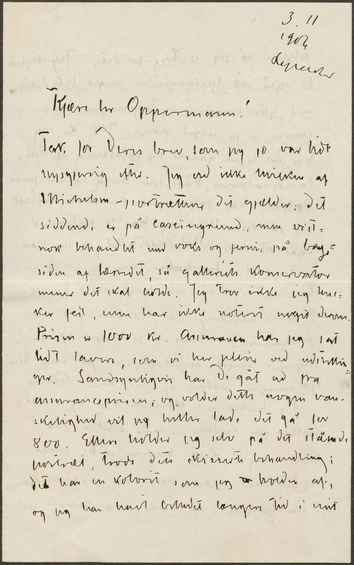 3. 11
1904
Kjære hr Oppermann!
Tak for Deres brev, som jeg jo var lidt
nysgjerrig efter. Jeg ved ikke hvilken af
Michelsen-portrætterne det gjælder; det
siddende er på caseingrund, men vist-
nok behandlet med voks og fernis på bag-
siden af lærredet, så galleriets konservator
mener det skal holde. Jeg tror ikke jeg hus-
ker feil, men har ikke noteret noget derom.
Prisen er 1000 kr. Assurancen har jeg sat
lidt lavere, som vi her pleier ved udstillin-
ger. Sandsynligvis har De gåt ud fra
assuranceprisen, og volder dette nogen van-
skelighed vil jeg heller lade det gå for
800. Ellers holder jeg selv på det stående
portræt, trods dets skisserte behandling;
det har en kolorit som jeg holder af,
og jeg har havt arbeidet længere tid i mit